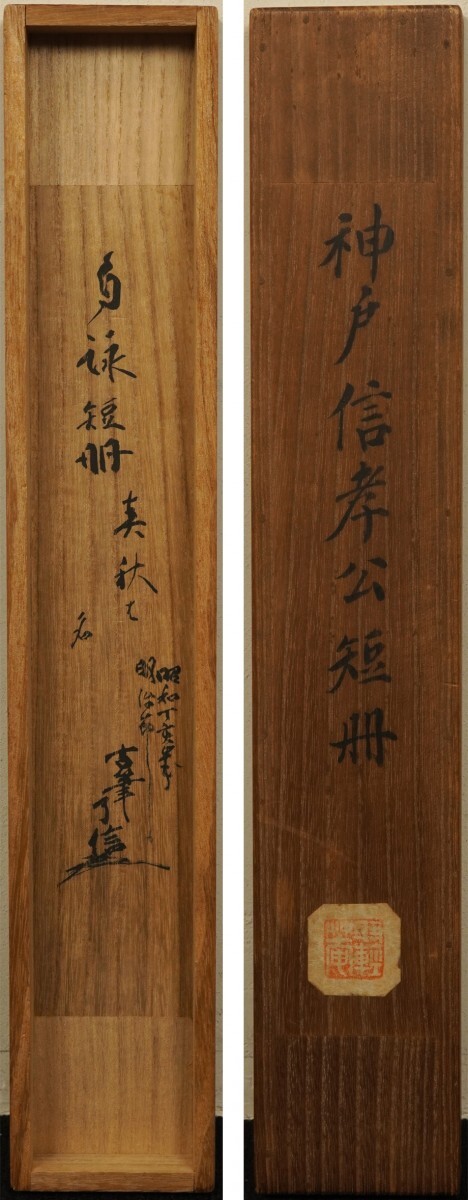 神戸信孝公短冊
自詠短冊
春秋は
名
昭和丁亥歳
明治節
古筆了信